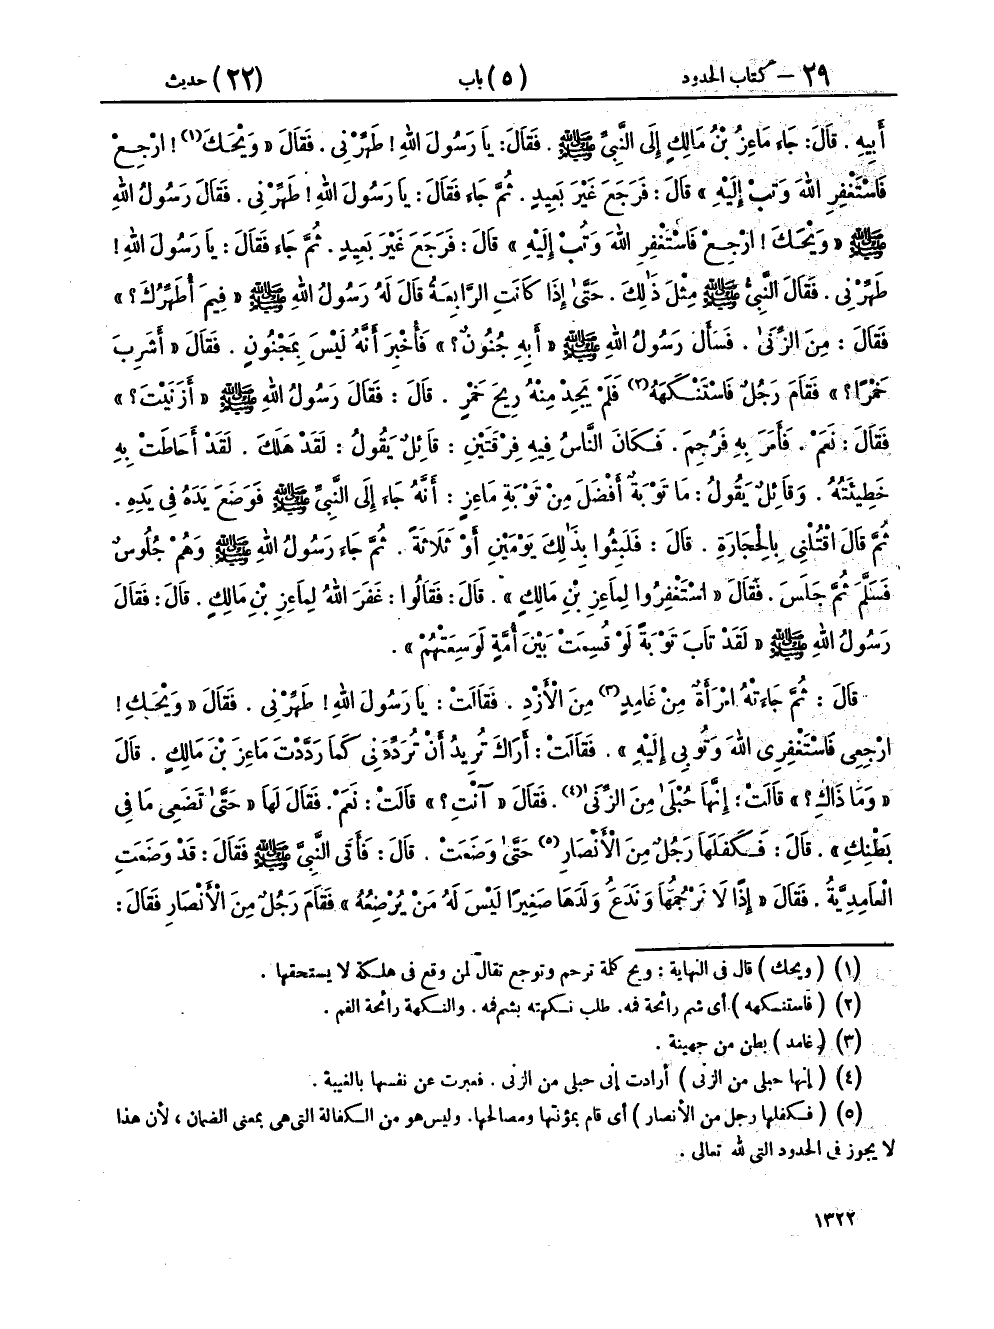 ٢٩ – كتاب الحدود (٥) باب (٢٢) حديث
أَبِيهِ . قَالَ: جَاءَ مَاعِزُ بْنُ مَالِكٍ إِلَى النَّبِيِّ ﷺ . فَقَالَ: يَا رَسُولَ اللهِ! طَهِّرْنِي . فَقَالَ « وَيْحَكَ(١)! ارْجِعْ
فَاسْتَغْفِرِ اللهَ وَتُبْ إِلَيْهِ » قَالَ: فَرَجَعَ غَيْرَ بَعِيدٍ . ثُمَّ جَاءَ فَقَالَ: يَا رَسُولَ اللهِ! طَهِّرْنِي . فَقَالَ رَسُولُ اللهِ
ﷺ « وَيْحَكَ! ارْجِعْ فَاسْتَغْفِرِ اللهَ وَتُبْ إِلَيْهِ » قَالَ: فَرَجَعَ غَيْرَ بَعِيدٍ . ثُمَّ جَاءَ فَقَالَ: يَا رَسُولَ اللهِ!
طَهِّرْنِي . فَقَالَ النَّبِيُّ ﷺ مِثْلَ ذَٰلِكَ . حَتَّىٰ إِذَا كَانَتِ الرَّابِعَةُ قَالَ لَهُ رَسُولُ اللهِ ﷺ « فِيمَ أُطَهِّرُكَ؟ »
فَقَالَ : مِنَ الزِّنَىٰ . فَسَأَلَ رَسُولُ اللهِ ﷺ « أَبِهِ جُنُونٌ؟ » فَأُخْبِرَ أَنَّهُ لَيْسَ بِمَجْنُونٍ . فَقَالَ « أَشَرِبَ
خَمْرًا؟ » فَقَامَ رَجُلٌ فَاسْتَنْكَهَهُ(٢) فَلَمْ يَجِدْ مِنْهُ رِيحَ خَمْرٍ . قَالَ : فَقَالَ رَسُولُ اللهِ ﷺ « أَزَنَيْتَ؟ »
فَقَالَ : نَعَمْ . فَأَمَرَ بِهِ فَرُجِمَ . فَكَانَ النَّاسُ فِيهِ فِرْقَتَيْنِ : قَائِلٌ يَقُولُ : لَقَدْ هَلَكَ . لَقَدْ أَحَاطَتْ بِهِ
خَطِيئَتُهُ . وَقَائِلٌ يَقُولُ : مَا تَوْبَةٌ أَفْضَلَ مِنْ تَوْبَةِ مَاعِزٍ : أَنَّهُ جَاءَ إِلَى النَّبِيِّ ﷺ فَوَضَعَ يَدَهُ فِي يَدِهِ .
ثُمَّ قَالَ اقْتُلْنِي بِالْحِجَارَةِ . قَالَ : فَلَبِثُوا بِذَٰلِكَ يَوْمَيْنِ أَوْ ثَلَاثَةً . ثُمَّ جَاءَ رَسُولُ اللهِ ﷺ وَهُمْ جُلُوسٌ
فَسَلَّمَ ثُمَّ جَلَسَ . فَقَالَ « اسْتَغْفِرُوا لِمَاعِزِ بْنِ مَالِكٍ » . قَالَ: فَقَالُوا : غَفَرَ اللهُ لِمَاعِزِ بْنِ مَالِكٍ . قَالَ: فَقَالَ
رَسُولُ اللهِ ﷺ « لَقَدْ تَابَ تَوْبَةً لَوْ قُسِمَتْ بَيْنَ أُمَّةٍ لَوَسِعَتْهُمْ » .
قَالَ : ثُمَّ جَاءَتْهُ امْرَأَةٌ مِنْ غَامِدٍ(٣) مِنَ الْأَزْدِ . فَقَالَتْ : يَا رَسُولَ اللهِ! طَهِّرْنِي . فَقَالَ « وَيْحَكِ!
ارْجِعِي فَاسْتَغْفِرِي اللهَ وَتُوبِي إِلَيْهِ » . فَقَالَتْ: أَرَاكَ تُرِيدُ أَنْ تُرَدِّدَنِي كَمَا رَدَّدْتَ مَاعِزَ بْنَ مَالِكٍ . قَالَ
« وَمَا ذَاكَ؟ » قَالَتْ: إِنَّهَا حُبْلَىٰ مِنَ الزِّنَىٰ(٤). فَقَالَ « آنْتِ؟ » قَالَتْ: نَعَمْ. فَقَالَ لَهَا « حَتَّىٰ تَضَعِي مَا فِي
بَطْنِكِ » . قَالَ : فَكَفَلَهَا رَجُلٌ مِنَ الْأَنْصَارِ(٥) حَتَّىٰ وَضَعَتْ . قَالَ : فَأَتَى النَّبِيَّ ﷺ فَقَالَ : قَدْ وَضَعَتِ
الْغَامِدِيَّةُ . فَقَالَ « إِذًا لَا نَرْجُمُهَا وَنَدَعُ وَلَدَهَا صَغِيرًا لَيْسَ لَهُ مَنْ يُرْضِعُهُ » فَقَامَ رَجُلٌ مِنَ الْأَنْصَارِ فَقَالَ :
(١) ( ويحك ) قال فى النهاية : ويح كلمة ترحم وتوجع تقال لمن وقع فى هلكة لا يستحقها .
(٢) ( فاستنكهه ) أى شم رائحة فمه. طلب نكهته بشم فمه . والنكهة رائحة الفم .
(٣) ( غامد ) بطن من جهينة .
(٤) ( إنها حبلى من الزنى ) أرادت إنى حبلى من الزنى . فعبرت عن نفسها بالغيبة .
(٥) ( فكفلها رجل من الأنصار ) أى قام بمؤنتها ومصالحها. وليس هو من الكفالة التى هى بمعنى الضمان ، لأن هذا
لا يجوز فى الحدود التى لله تعالى .
١٣٢٢